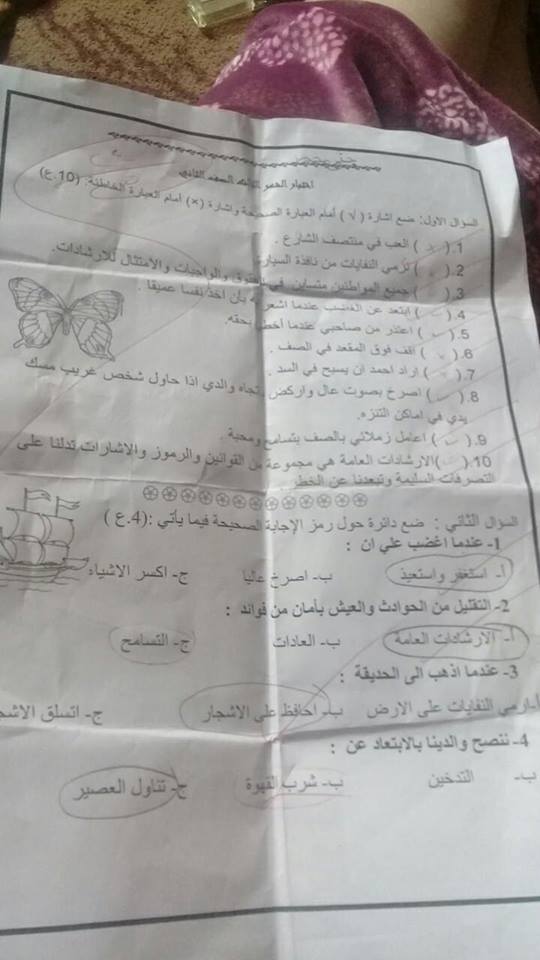 اختبار الشهر الثالث الصف الثاني
السؤال الاول: ضع اشارة ( √ ) أمام العبارة الصحيحة واشارة (×) أمام العبارة الخاطئة: (10.ع)
1.( ) العب في منتصف الشارع .
2.( ) نرمي النفايات من نافذة السيارة
3.( ) جميع المواطنين متساين في الحقوق والواجبات والامتثال للارشادات.
4.( ) ابتعد عن الغضب عندما اشعر به بأن أخذ نفسا عميقا .
5.( ) اعتذر من صاحبي عندما أخطئ بحقه.
6.( ) اقف فوق المقعد في الصف .
7.( ) اراد احمد ان يسبح في السد .
8.( ) اصرخ بصوت عال واركض تجاه والدي اذا حاول شخص غريب مسك
يدي في اماكن التنزه.
9.( ) اعامل زملائي بالصف بتسامح ومحبة .
10.( )الارشادات العامة هي مجموعة من القوانين والرموز والاشارات تدلنا على
التصرفات السليمة وتبعدنا عن الخطر .
السؤال الثاني : ضع دائرة حول رمز الإجابة الصحيحة فيما يأتي :(4.ع )
1- عندما اغضب علي ان :
أ- استغفر واستعيذ ب- اصرخ عاليا ج- اكسر الاشياء
2- التقليل من الحوادث والعيش بأمان من فوائد :
أ- الارشادات العامة ب- العادات ج- التسامح
3- عندما اذهب الى الحديقة :
أ- ارمي النفايات على الارض ب- احافظ على الاشجار ج- اتسلق
4- ننصح والدينا بالابتعاد عن :
ب- التدخين ب- شرب القهوة ج- تناول العصير